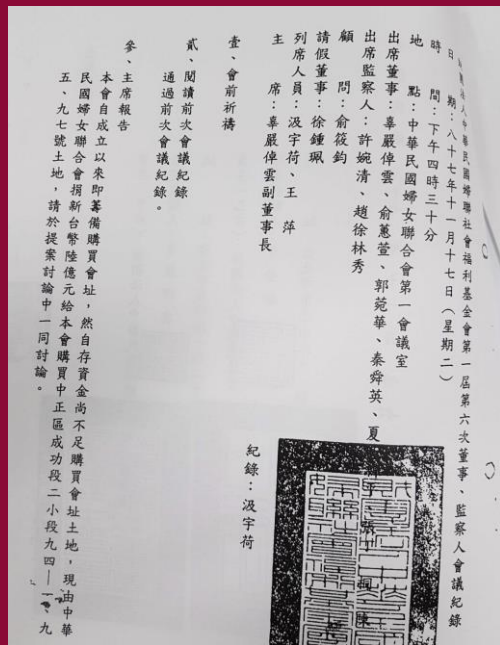 中華民國婦聯社會福利基金會第一屆第六次董事、監察人會議紀錄
日　　期：八十七年十一月十七日（星期二）
時　　間：下午四時三十分
地　　點：中華民國婦女聯合會第一會議室
出席董事：辜嚴倬雲、俞蕙萱、郭菀華、秦舜英、夏
出席監察人：許婉清、趙徐林秀
顧　　問：俞筱鈞
請假董事：徐鍾珮
列席人員：汲宇荷、王　萍
主　　席：辜嚴倬雲副董事長
紀錄：汲宇荷
壹、會前祈禱
貳、閱讀前次會議紀錄
通過前次會議紀錄。
參、主席報告
本會自成立以來即籌備購買會址，然自存資金尚不足購買會址土地，現由中華
民國婦女聯合會捐新台幣陸億元給本會購買中正區成功段二小段九四—一、九
五、九七號土地，請於提案討論中一同討論。